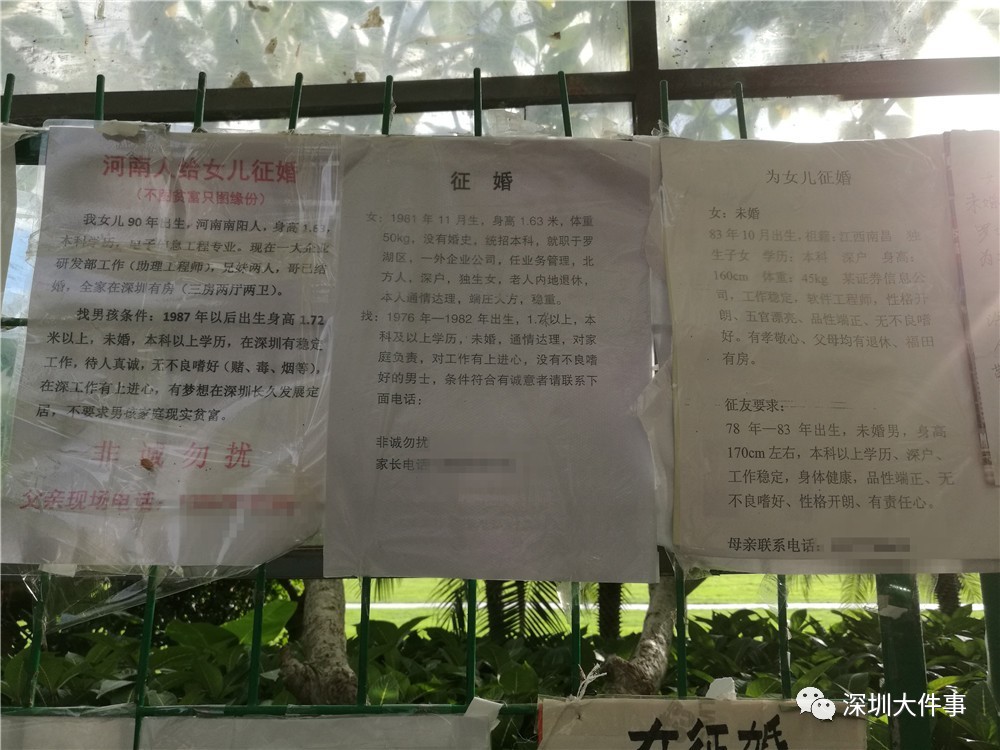 河南人给女儿征婚
（不图贫富只图缘份）
我女儿90年出生，河南南阳人，身高1.63，
本科学历，电子信息工程专业。现在一大企业
研发部工作（助理工程师），兄妹两人，哥已结
婚，全家在深圳有房（三房两厅两卫）。
找男孩条件：1987年以后出生身高1.72
米以上，未婚，本科以上学历，在深圳有稳定
工作，待人真诚，无不良嗜好（赌、毒、烟等），
在深工作有上进心，有梦想在深圳长久发展定
居，不要求男孩家庭现实贫富。
非诚勿扰
父亲现场电话：
征 婚
女：1981年11月生，身高1.63米，体重
50kg，没有婚史，统招本科，就职于罗
湖区，一外企业公司，任业务管理，北
方人，深户，独生女，老人内地退休，
本人通情达理，端庄大方，稳重。
找：1976年—1982年出生，1.7以上，本
科及以上学历，未婚，通情达理，对家
庭负责，对工作有上进心，没有不良嗜
好的男士，条件符合有诚意者请联系下
面电话：
非诚勿扰
家长电话
为女儿征婚
女：未婚
83年10月出生，祖籍：江西南昌 独
生子女 学历：本科 深户 身高：
160cm 体重：45kg 某证券信息公
司，工作稳定，软件工程师，性格开
朗、五官漂亮、品性端正、无不良嗜
好。有孝敬心、父母均有退休、福田
有房。
征友要求：
78年—83年出生，未婚男，身高
170cm左右，本科以上学历、深户、
工作稳定，身体健康，品性端正、无
不良嗜好、性格开朗、有责任心。
母亲联系电话：
女征婚
深圳大件事